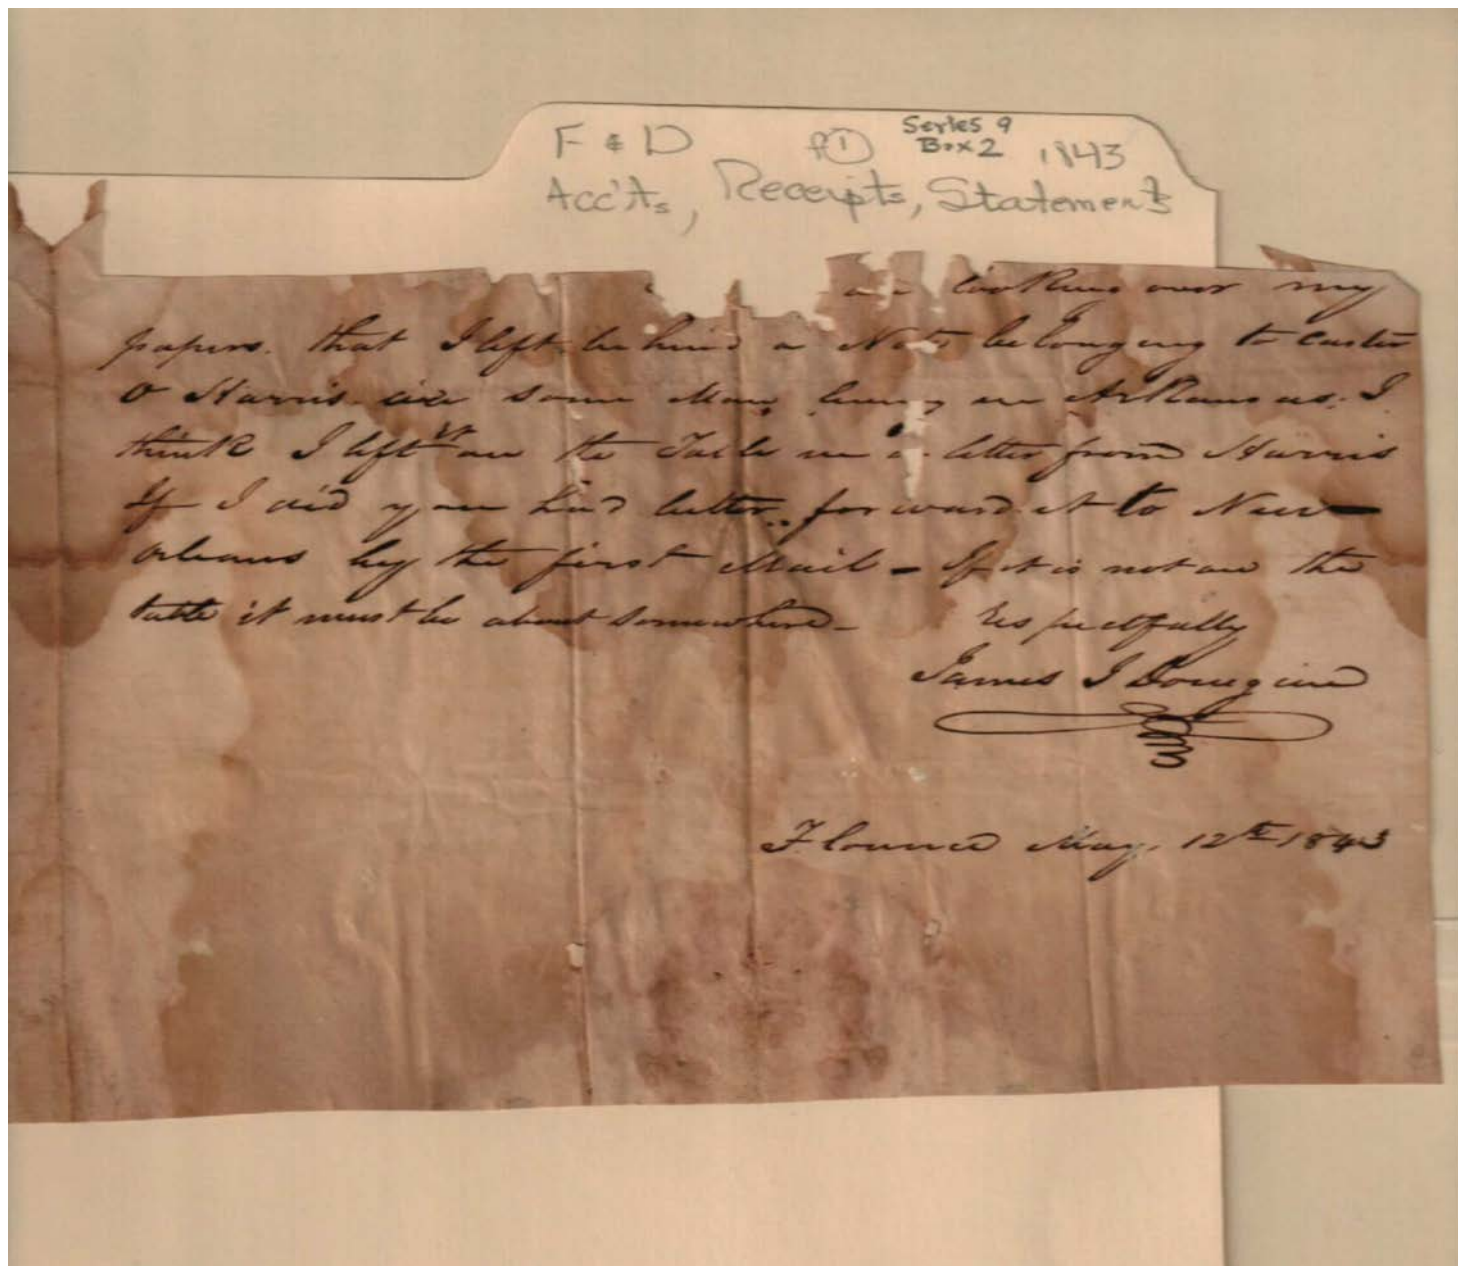 F & D
Series 9
Box 2
1843
Acc'ts, Receipts, Statements
looking over my
papers. that I left behind a Note belonging to
& Harris some Man living in Arkansas. I
think I left it on the Table in a letter from Harris
If I did you had better forward it to New
Orleans by the first Mail - If it is not on the
table it must be about somewhere -
Respectfully
James J Donegan
Florence May, 12th 1843